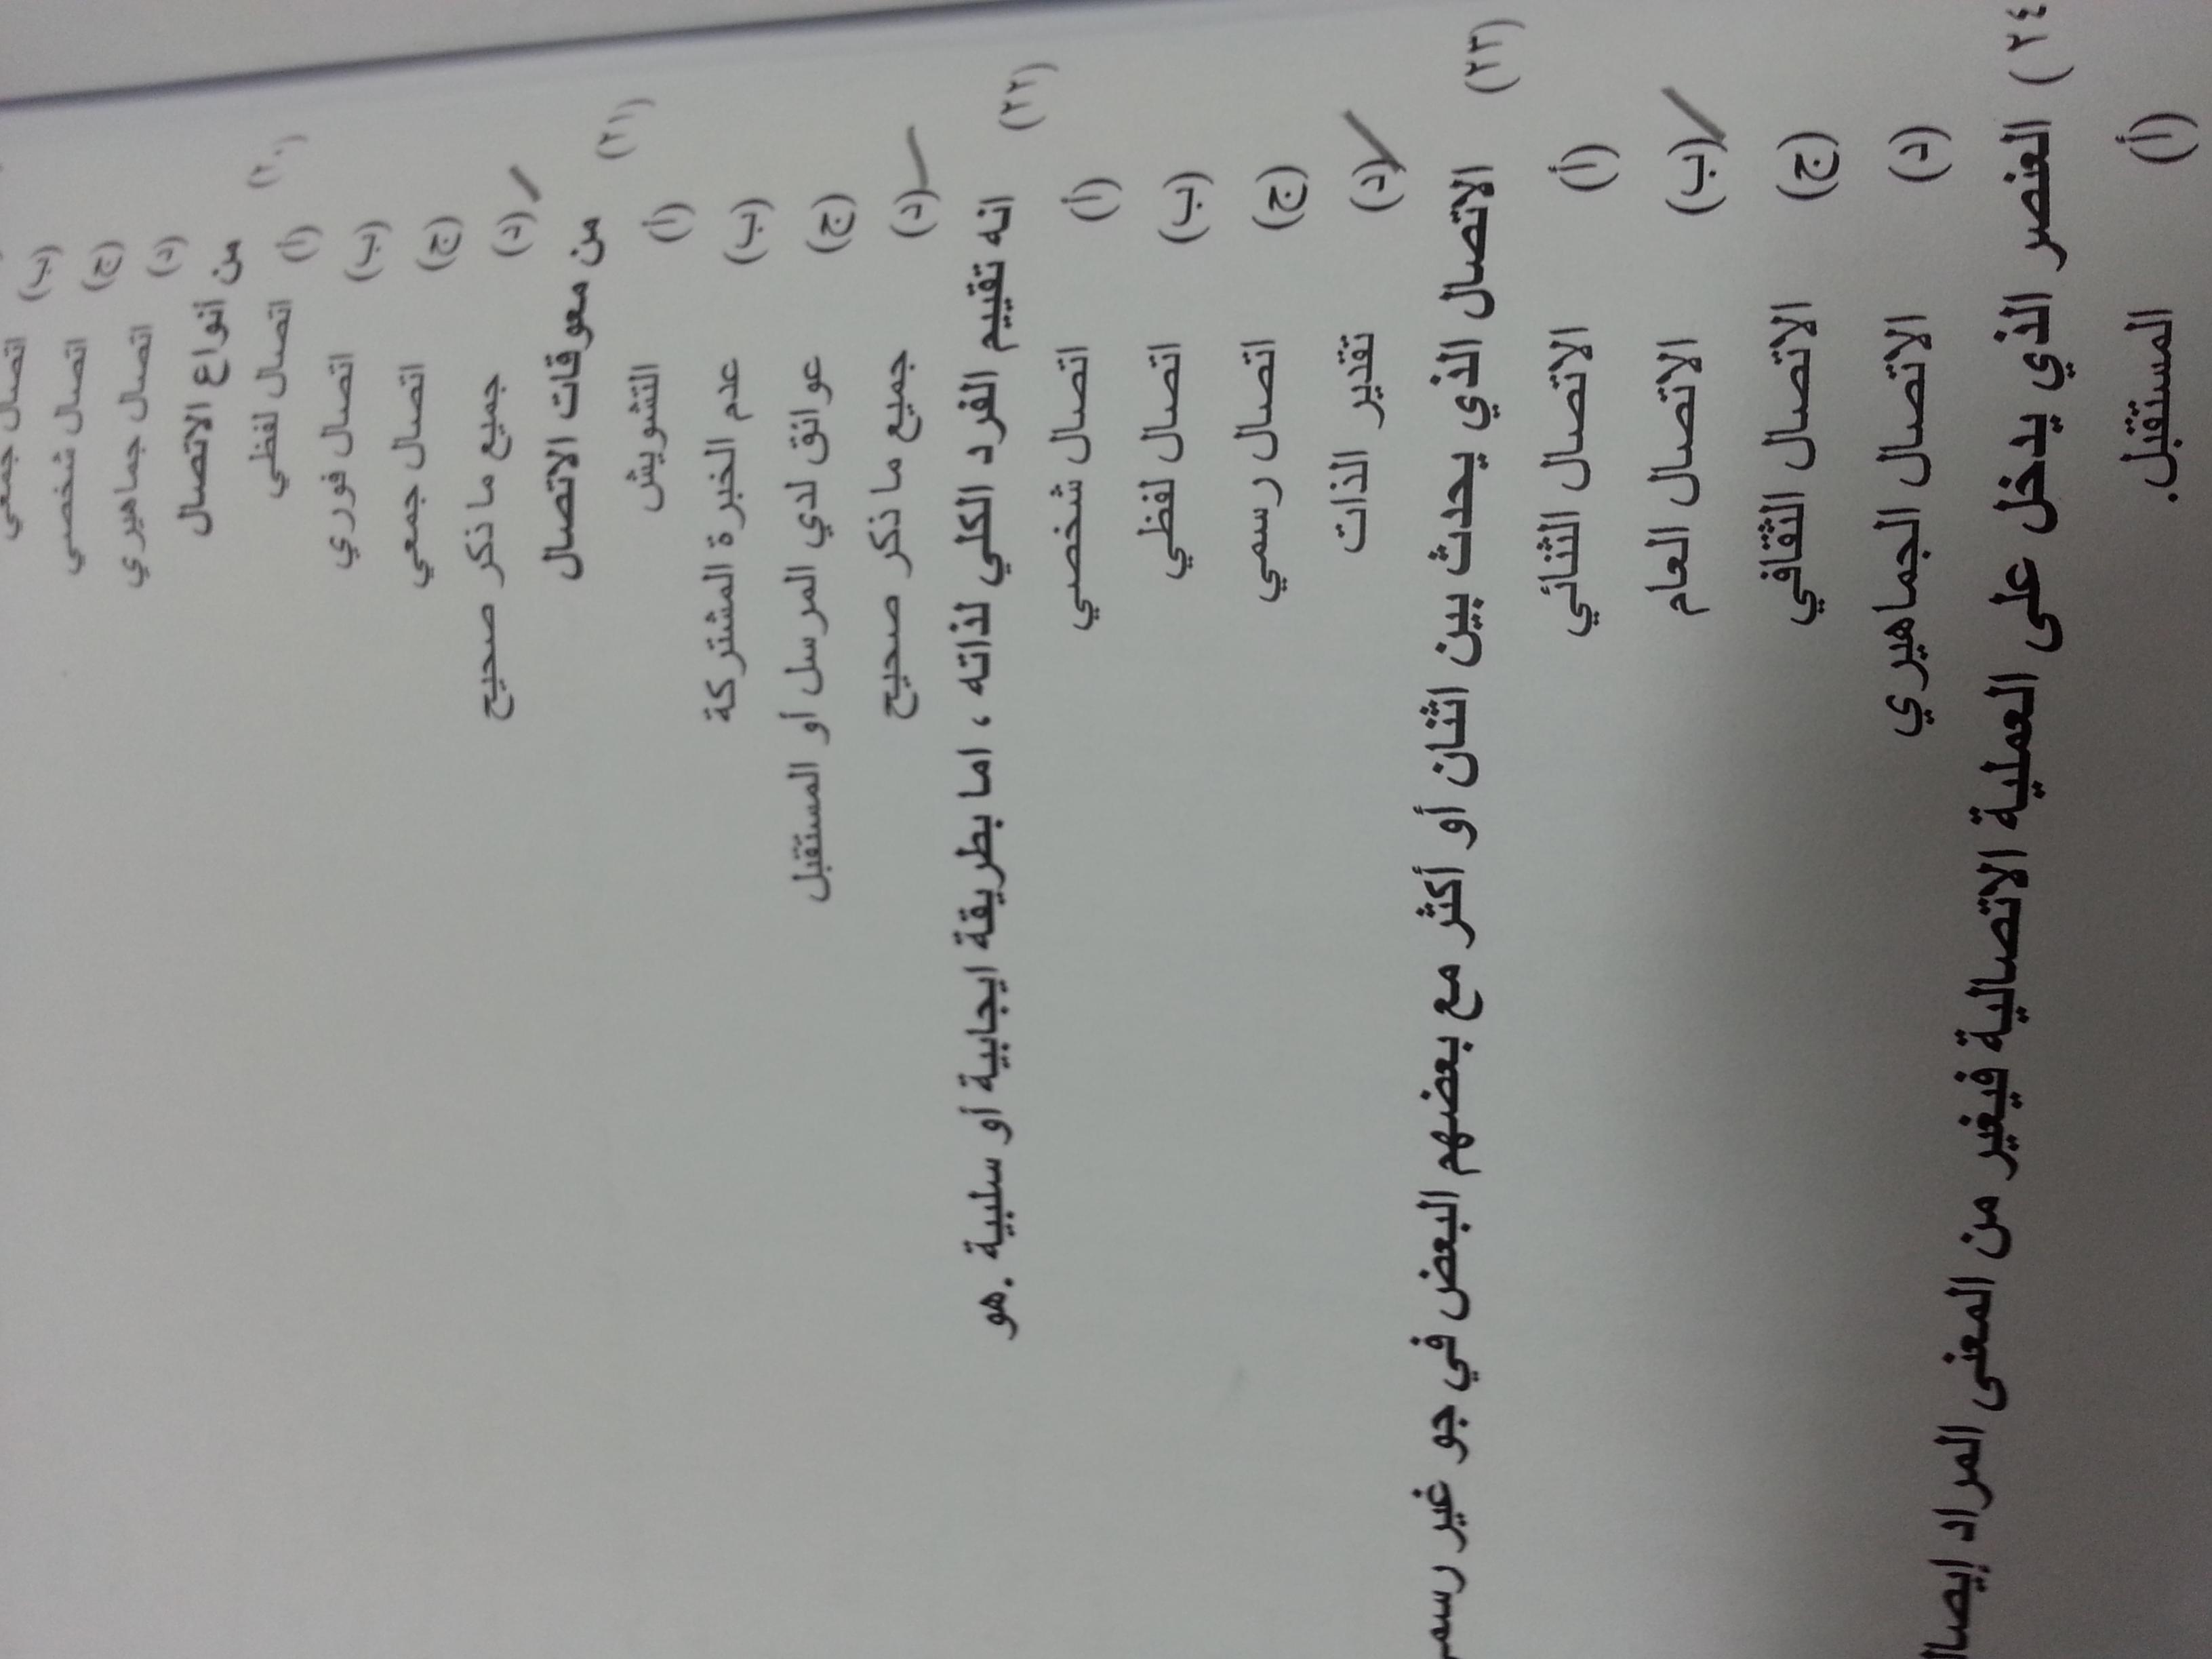 (ب) اتصال جمعي
(ج) اتصال شخصي
(د) اتصال جماهيري
(٢٠) من أنواع الاتصال
(أ) اتصال لفظي
(ب) اتصال فوري
(ج) اتصال جمعي
(د) جميع ما ذكر صحيح
(٢١) من معوقات الاتصال
(أ) التشويش
(ب) عدم الخبرة المشتركة
(ج) عوائق لدي المرسل أو المستقبل
(د) جميع ما ذكر صحيح
(٢٢) انه تقييم الفرد الكلي لذاته ، اما بطريقة ايجابية أو سلبية .هو
(أ) اتصال شخصي
(ب) اتصال لفظي
(ج) اتصال رسمي
(د) تقدير الذات
(٢٣) الاتصال الذي يحدث بين اثنان أو أكثر مع بعضهم البعض في جو غير رسم
(أ) الاتصال الثنائي
(ب) الاتصال العام
(ج) الاتصال الثقافي
(د) الاتصال الجماهيري
٢٤) العنصر الذي يدخل على العملية الاتصالية فيغير من المعنى المراد إيصال
(أ) المستقبل.